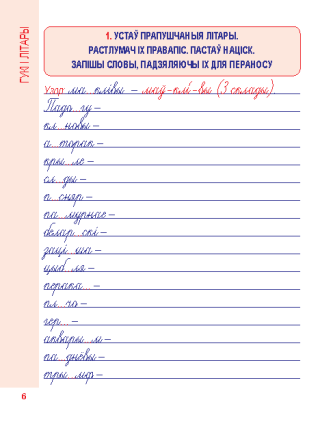 ГУКІ І ЛІТАРЫ
1. УСТАЎ ПРАПУШЧАНЫЯ ЛІТАРЫ.
РАСТЛУМАЧ ІХ ПРАВАПІС. ПАСТАЎ НАЦІСК.
ЗАПІШЫ СЛОВЫ, ПАДЗЯЛЯЮЧЫ ІХ ДЛЯ ПЕРАНОСУ
Узор: ма клівы – маў-клі-вы (3 склады).
Пада гу –
кл новы –
а торак –
кры ло –
сл ды –
п сняр –
па мурнас –
белар скі –
заці ша –
цыб ля –
перапа... –
пл...чо –
гер... –
аквары лі –
па днёвы –
тры мф –
6